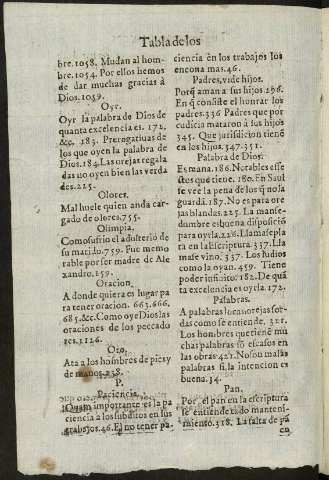 Tabla de los
bre.1058. Mudan al hom-
bre.1054. Por ellos hemos
de dar muchas gracias à
Dios.1059.
Oyr.
Oyr la palabra de Dios de
quanta excelencia es. 172,
&c. 183. Prerogatiuas de
los que oyen la palabra de
Dios.184. Las orejas regala
das no oyen bien las verda
des.225.
Olores.
Mal huele quien anda car-
gado de olores.755.
Olimpia.
Como sufrio el adulterio de
su marido.759. Fue memo
rable por ser madre de Ale
xandro.159.
Oracion.
A donde quiera es lugar pa
ra tener oracion. 663.666,
685.&c. Como oye Dios las
oraciones de los peccado
res.1126.
Oro.
Ata a los hombres de pies y
de manos.238.
P.
Paciencia.
Quam importante es la pa
ciencia a los subditos en sus
trabajos.46. El no tener pa-
ciencia en los trabajos los
encona mas.46.
Padres, vide hijos.
Porq̃ aman a sus hijos.296.
En q̃ consiste el honrar los
padres.336 Padres que por
cudicia mataron a sus hijos
345. Que jurisdicion tienẽ
en los hijos.347.351.
Palabra de Dios.
Es mana.186. Notables effe
ctos que tiene.180. En Saul
se vee la pena de los q̃ no la
guardã.187. No es para ore
jas blandas.225. La manse-
dumbre es buena disposiciõ
para oyrla.226. Llamase pla
ta en la Escriptura.337. Lla
mase vino.337. Los Iudios
como la oyan.459. Tiene
poder infinito.182. De quã
ta excelencia es oyrla.172.
Palabras.
A palabras locas orejas sor-
das como se entiende. 321.
Los hombres que tienẽ mu
chas palabras sõ escasos en
las obras.421. No son malas
palabras si la intencion es
buena.34.
Pan.
Por el pan en la escriptura
se entiende todo manteni-
miento.318. La falta de pã
en